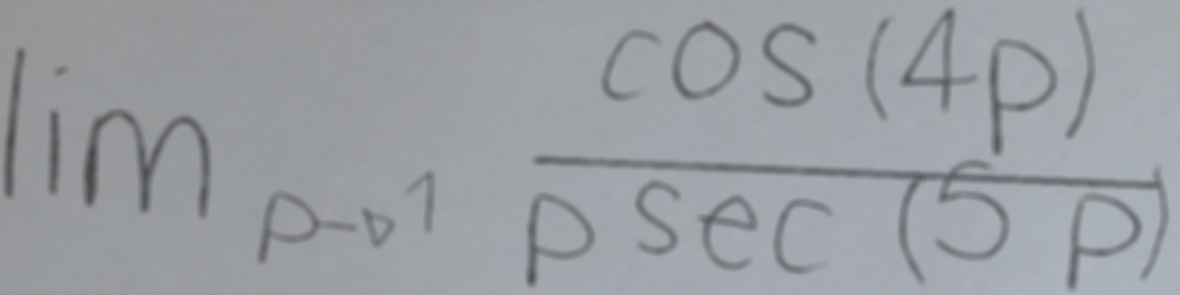 \lim_{p \to 1} \frac{\cos(4p)}{p \sec(5p)}